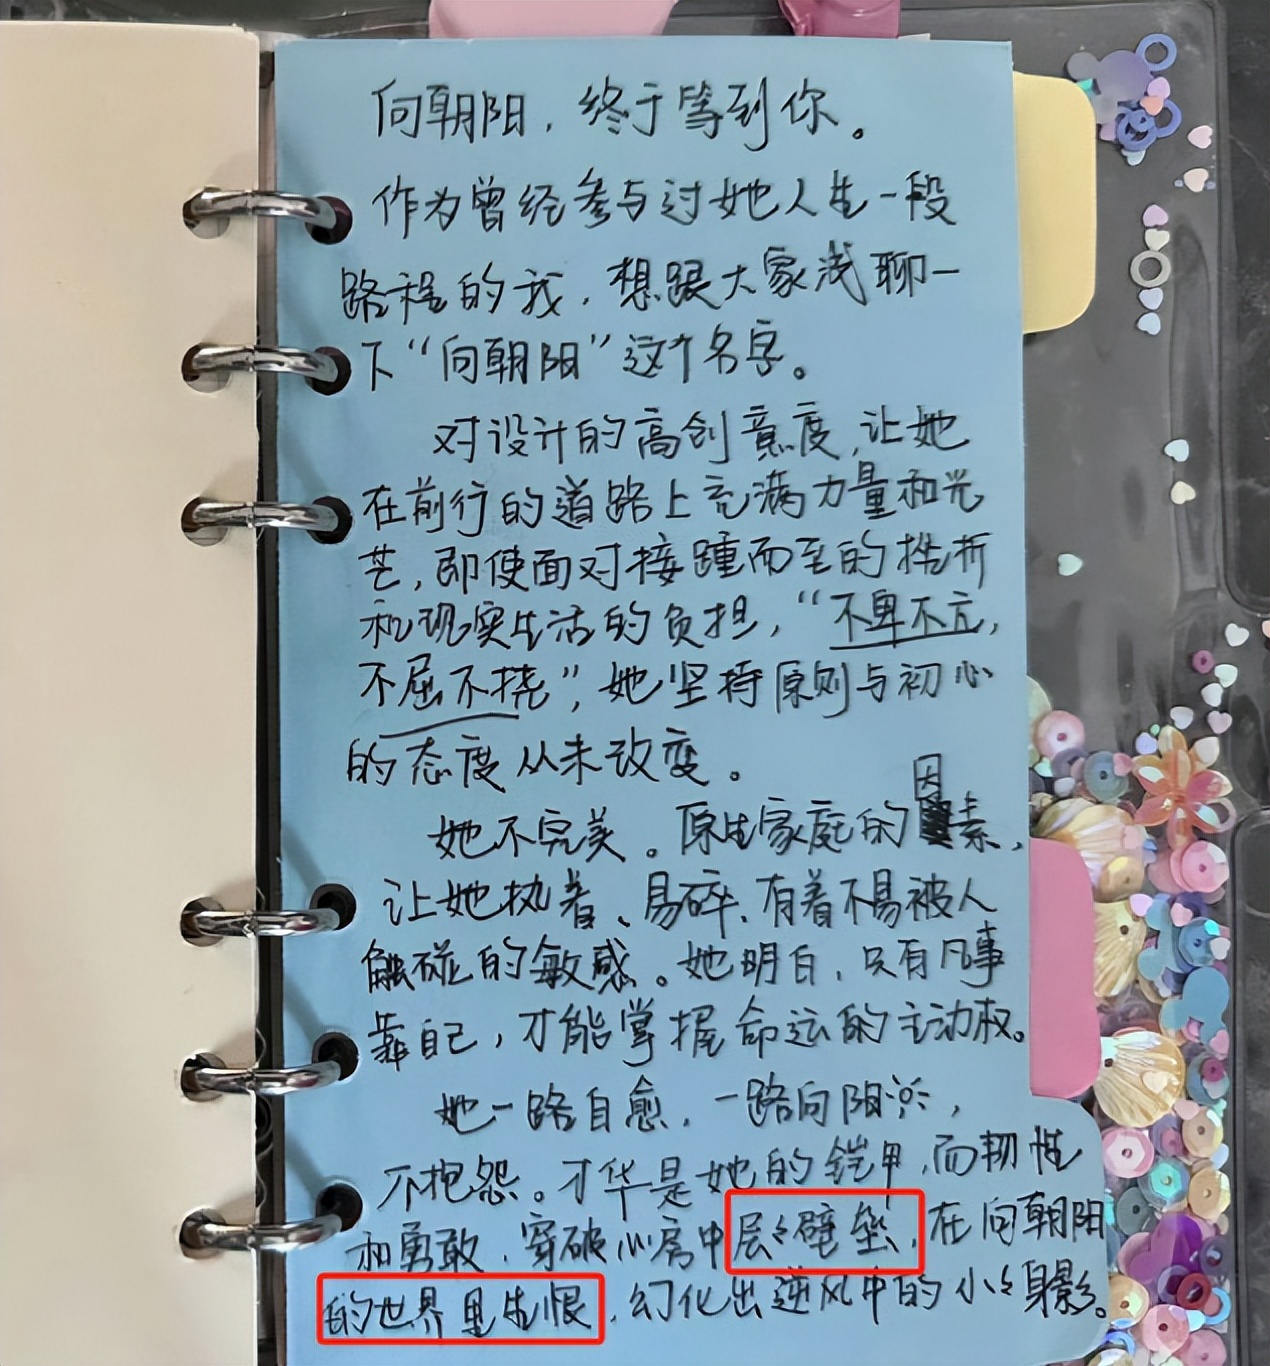 向朝阳，终于等到你。
作为曾经参与过她人生一段
路程的我，想跟大家浅聊一
下“向朝阳”这个名字。
对设计的高创意度，让她
在前行的道路上充满力量和光
芒，即使面对接踵而至的挫折
和现实生活的负担，“不卑不亢，
不屈不挠”，她坚持原则与初心
的态度从未改变。
她不完美。原生家庭的因素，
让她执着、易碎、有着不易被人
触碰的敏感。她明白，只有凡事
靠自己，才能掌握命运的主动权。
她一路自愈，一路向阳，
不抱怨。才华是她的铠甲，而韧性
和勇敢，穿破心房中层々壁垒，在向朝阳
的世界里生恨，幻化出逆风中的小々身影。